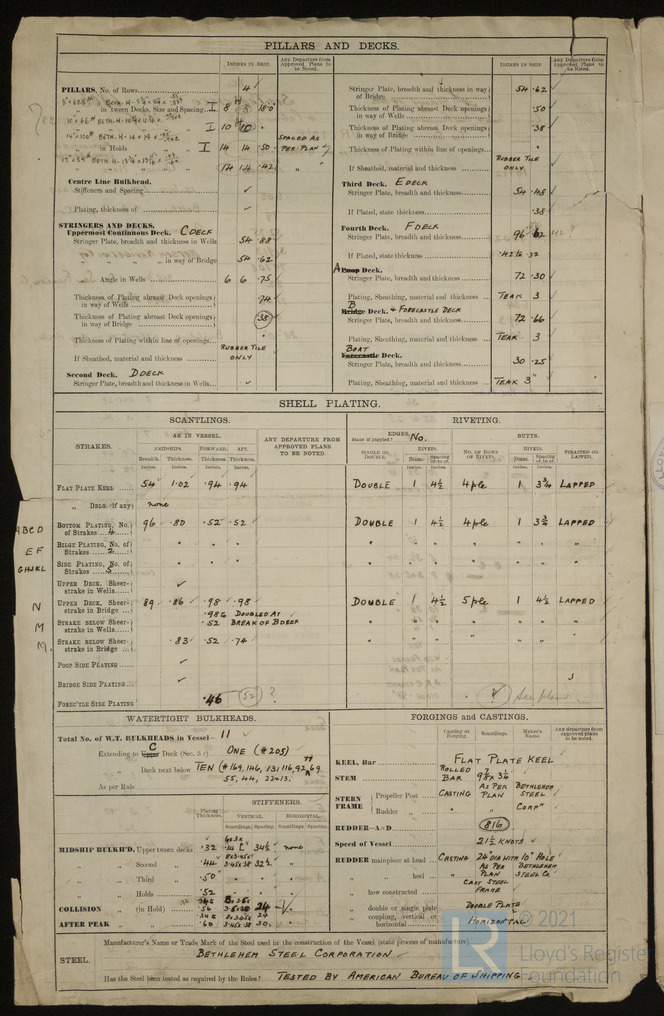 PILLARS AND DECKS.
INCHES IN SHIP.
Any Departure from Approved Plans to be Noted.
PILLARS, No. of Rows 4
in 'tween Decks, Size and Spacing I 8 8 18.0
I 10 10 "
in Holds I 14 14 .50
14 14 .42
SPACED AS PER PLAN
Centre Line Bulkhead.
Stiffeners and Spacing ✓
Plating, thickness of ✓
STRINGERS AND DECKS.
Uppermost Continuous Deck. C DECK
Stringer Plate, breadth and thickness in Wells 54 .88
" " " in way of Bridge 54 .62
" Angle in Wells 6 6 .75
Thickness of Plating abreast Deck openings in way of Wells .74
Thickness of Plating abreast Deck openings in way of Bridge .38
Thickness of Plating within line of openings "
If Sheathed, material and thickness RUBBER TILE ONLY
Second Deck. D DECK
Stringer Plate, breadth and thickness in Wells ✓
INCHES IN SHIP.
Any Departure from Approved Plans to be Noted.
Stringer Plate, breadth and thickness in way of Bridge 54 .62
Thickness of Plating abreast Deck openings in way of Wells .50
Thickness of Plating abreast Deck openings in way of Bridge .38
Thickness of Plating within line of openings "
If Sheathed, material and thickness RUBBER TILE ONLY
Third Deck. E DECK
Stringer Plate, breadth and thickness 54 .48
If Plated, state thickness .38
Fourth Deck. F DECK
Stringer Plate, breadth and thickness 96 .62
If Plated, state thickness
A Poop Deck.
Stringer Plate, breadth and thickness 72 .30
Plating, Sheathing, material and thickness TEAK 3
B Bridge Deck. + FORECASTLE DECK
Stringer Plate, breadth and thickness 72 .66
Plating, Sheathing, material and thickness TEAK 3
BOAT Forecastle Deck.
Stringer Plate, breadth and thickness 30 .25
Plating, Sheathing, material and thickness TEAK 3"
SHELL PLATING.
SCANTLINGS.
RIVETING.
STRAKES.
AS IN VESSEL.
AMIDSHIPS. FORWARD. AFT.
Breadth. Thickness. Thickness. Thickness.
Inches. Inches. Inches. Inches.
ANY DEPARTURE FROM APPROVED PLANS TO BE NOTED.
EDGES. State if joggled? No.
SINGLE OR DOUBLE.
RIVETS.
Diam. Spacing cr. to cr.
Inches. Inches.
BUTTS.
NO. OF ROWS OF RIVETS.
RIVETS.
Diam. Spacing cr. to cr.
Inches. Inches.
STRAPPED OR LAPPED.
FLAT PLATE KEEL 54 1.02 .94 .94 DOUBLE 1 4½ 4ple 1 3¾ LAPPED
" DBLG. (if any) none
ABCD BOTTOM PLATING, No. of Strakes 4 96 .80 .52 .52 DOUBLE 1 4½ 4ple 1 3¾ LAPPED
EF BILGE PLATING, No. of Strakes 2 " " " " " " " " " "
GHJKL SIDE PLATING, No. of Strakes 5 " " " " " " " " " "
UPPER DECK, Sheerstrake in Wells ✓
N UPPER DECK, Sheerstrake in Bridge 89 .86 .98 .98 DOUBLE 1 4½ 5ple 1 4½ LAPPED
.98 & DOUBLED AT
M STRAKE BELOW Sheerstrake in Wells .52 BREAK OF B DECK " " " " " " "
M. STRAKE BELOW Sheerstrake in Bridge .83 .52 .74 " " " " " " "
POOP SIDE PLATING ✓
BRIDGE SIDE PLATING ✓
FOREC'TLE SIDE PLATING .46 52 ?
WATERTIGHT BULKHEADS.
Total No. of W.T. BULKHEADS in Vessel— 11
Extending to C Upper Deck (Sec. 3) ONE (#205)
" Deck next below TEN (#169, 146, 131, 116, 92, 77, 69
55, 44, 22+13.
As per Rule
Plating Thickness.
STIFFENERS.
VERTICAL. HORIZONTAL.
Scantlings. Spacing. Scantlings. Spacing.
MIDSHIP BULKH'D, Upper 'tween decks .32 34½ none
" Second " .44 32½ "
" Third " .50
" Holds " .52
COLLISION " (in Hold) .56 24
AFTER PEAK " " .60 30
FORGINGS AND CASTINGS.
Casting or Forging.
Scantlings.
Maker's Name.
Any departure from approved plans to be noted.
KEEL, Bar FLAT PLATE KEEL
STEM ROLLED BAR
STERN FRAME { Propeller Post CASTING AS PER PLAN BETHLEHEM STEEL
Rudder " " " CORPN
RUDDER—A×D 816
Speed of Vessel 21½ KNOTS
RUDDER mainpiece at head CASTING 24" DIA WITH 10" HOLE
" " heel " AS PER PLAN BETHLEHEM STEEL CO.
" how constructed CAST STEEL FRAME
" double or single plate DOUBLE PLATE
" coupling, vertical or horizontal HORIZONTAL
STEEL.
Manufacturer's Name or Trade Mark of the Steel used in the construction of the Vessel (state process of manufacture)
BETHLEHEM STEEL CORPORATION
Has the Steel been tested as required by the Rules? TESTED BY AMERICAN BUREAU OF SHIPPING
LR © 2021
Lloyd's Register
Foundation